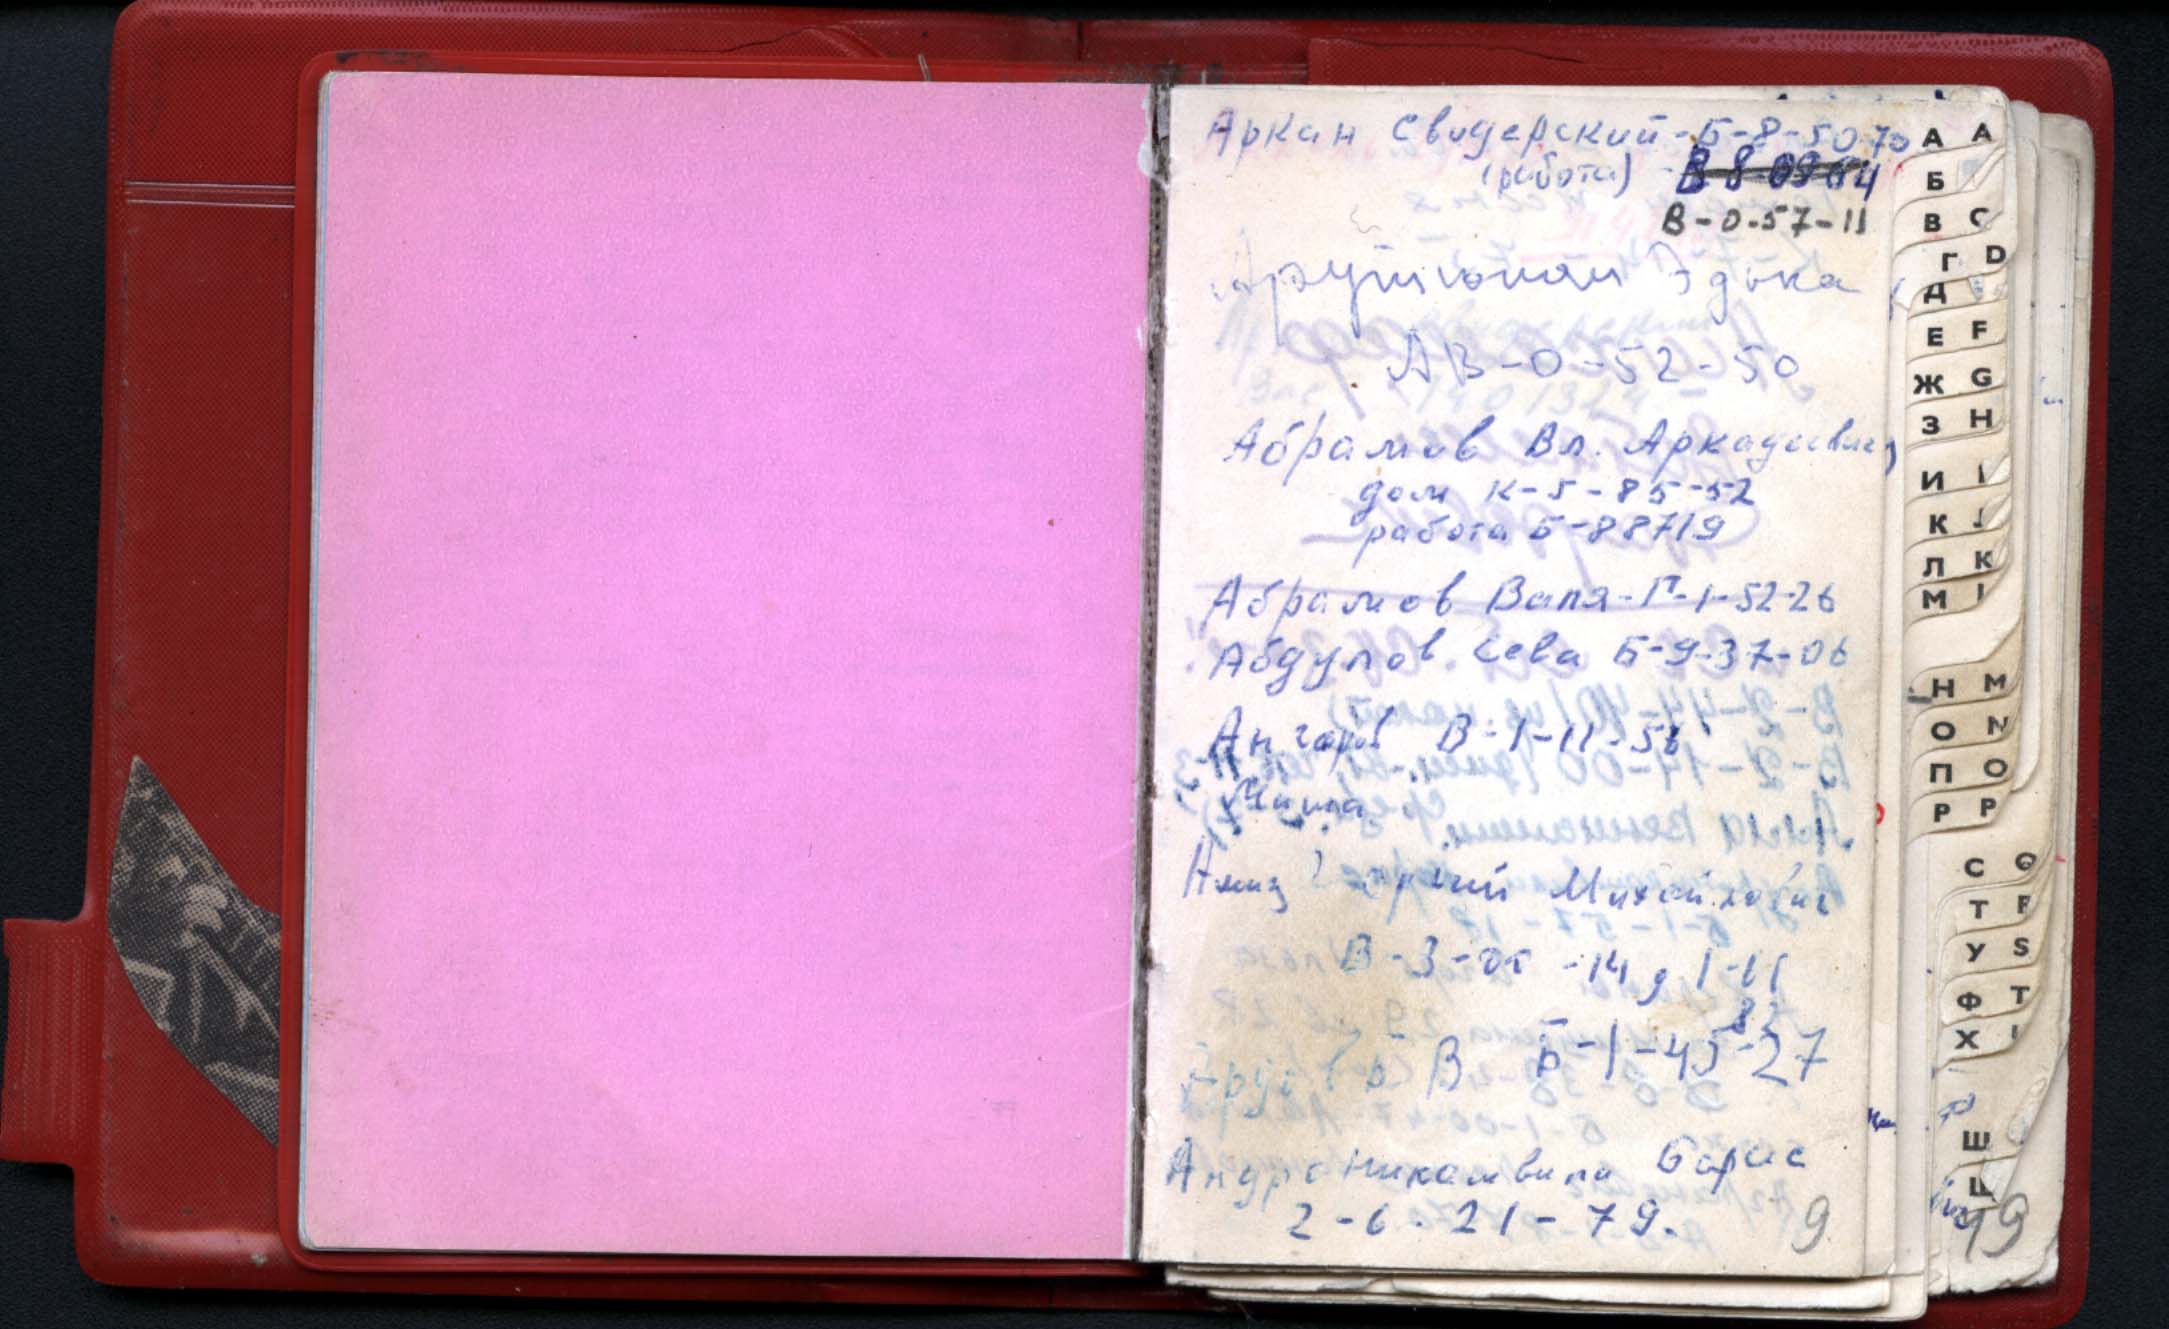 Аркан Свидерский - Б-8-50-70
(работа)
В-0-57-11
Арутюнян Эдька
АВ-0-52-50
Абрамов Вл. Аркадьевич
дом К-5-85-52
работа Б-88719
Абрамов Валя - Г-1-52-26
Абдулов Сева Б-9-37-06
Ангаров В-1-11-56
Миша
Михайлович
В-3- -14
В Б-1-45-27
Андроникашвили Борис
2-6-21-79.
9
19
А А
Б
В C
Г D
Д
Е F
Ж G
З H
И I
К J
Л K
М
Н M
О N
П O
Р P
С Q
Т
У S
Ф T
Х
Ш
Щ